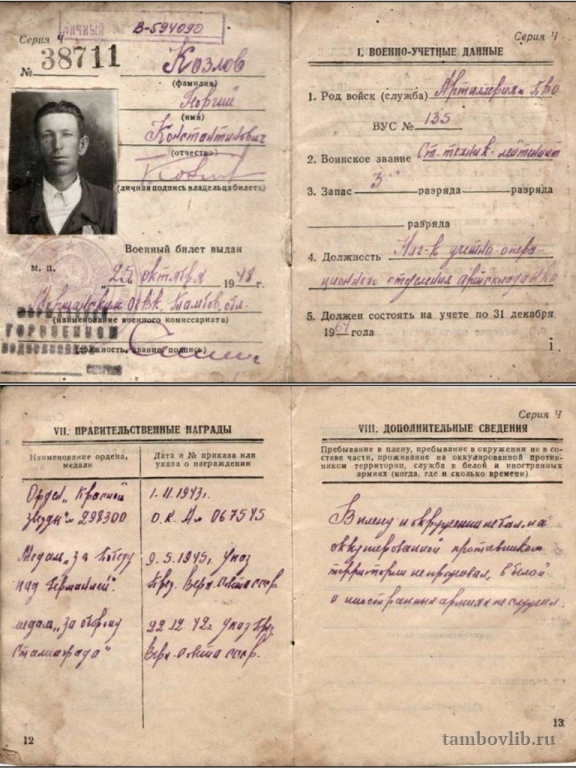 личный № В-594090
Серия Ч
№ 38711
Козлов
(фамилия)
Георгий
(имя)
Константинович
(отчество)
Козлов
(личная подпись владельца билета)
Военный билет выдан
м. п. 25 октября 1948 г.
Моршанским Тамбов. обл.
(наименование военного комиссариата)
ГОРВОЕНКОМ
(должность, звание, подпись)
Серия Ч
I. ВОЕННО-УЧЕТНЫЕ ДАННЫЕ
1. Род войск (служба) Артиллерия ПВО
ВУС № 135
2. Воинское звание Ст. техник-лейтенант
3. Запас 3 разряда разряда
разряда
4. Должность Нач-к учетно-опера
ционного отделения артсклада
5. Должен состоять на учете по 31 декабря
19 года
1.
VII. ПРАВИТЕЛЬСТВЕННЫЕ НАГРАДЫ
Наименование ордена, медали
Дата и № приказа или указа о награждении
Орден „Красной
звезды" № 298300
1. 11 1943 г.
о.к. А № 067545
Медаль „за победу
над Германией".
9. 5. 1945 г. Указ
През. Верх Совета СССР
медаль „за оборону
Сталинграда"
22 12. 42 г. Указ През.
Верх Совета СССР.
12
Серия Ч
VIII. ДОПОЛНИТЕЛЬНЫЕ СВЕДЕНИЯ
Пребывание в плену, пребывание в окружении не в со-
ставе части, проживание на оккупированной против-
ником территории, служба в белой и иностранных
армиях (когда, где и сколько времени)
В плену и окружении не был, на
оккупированной противником
территории не проживал, в белой
и иностранных армиях не служил.
13
tambovlib.ru